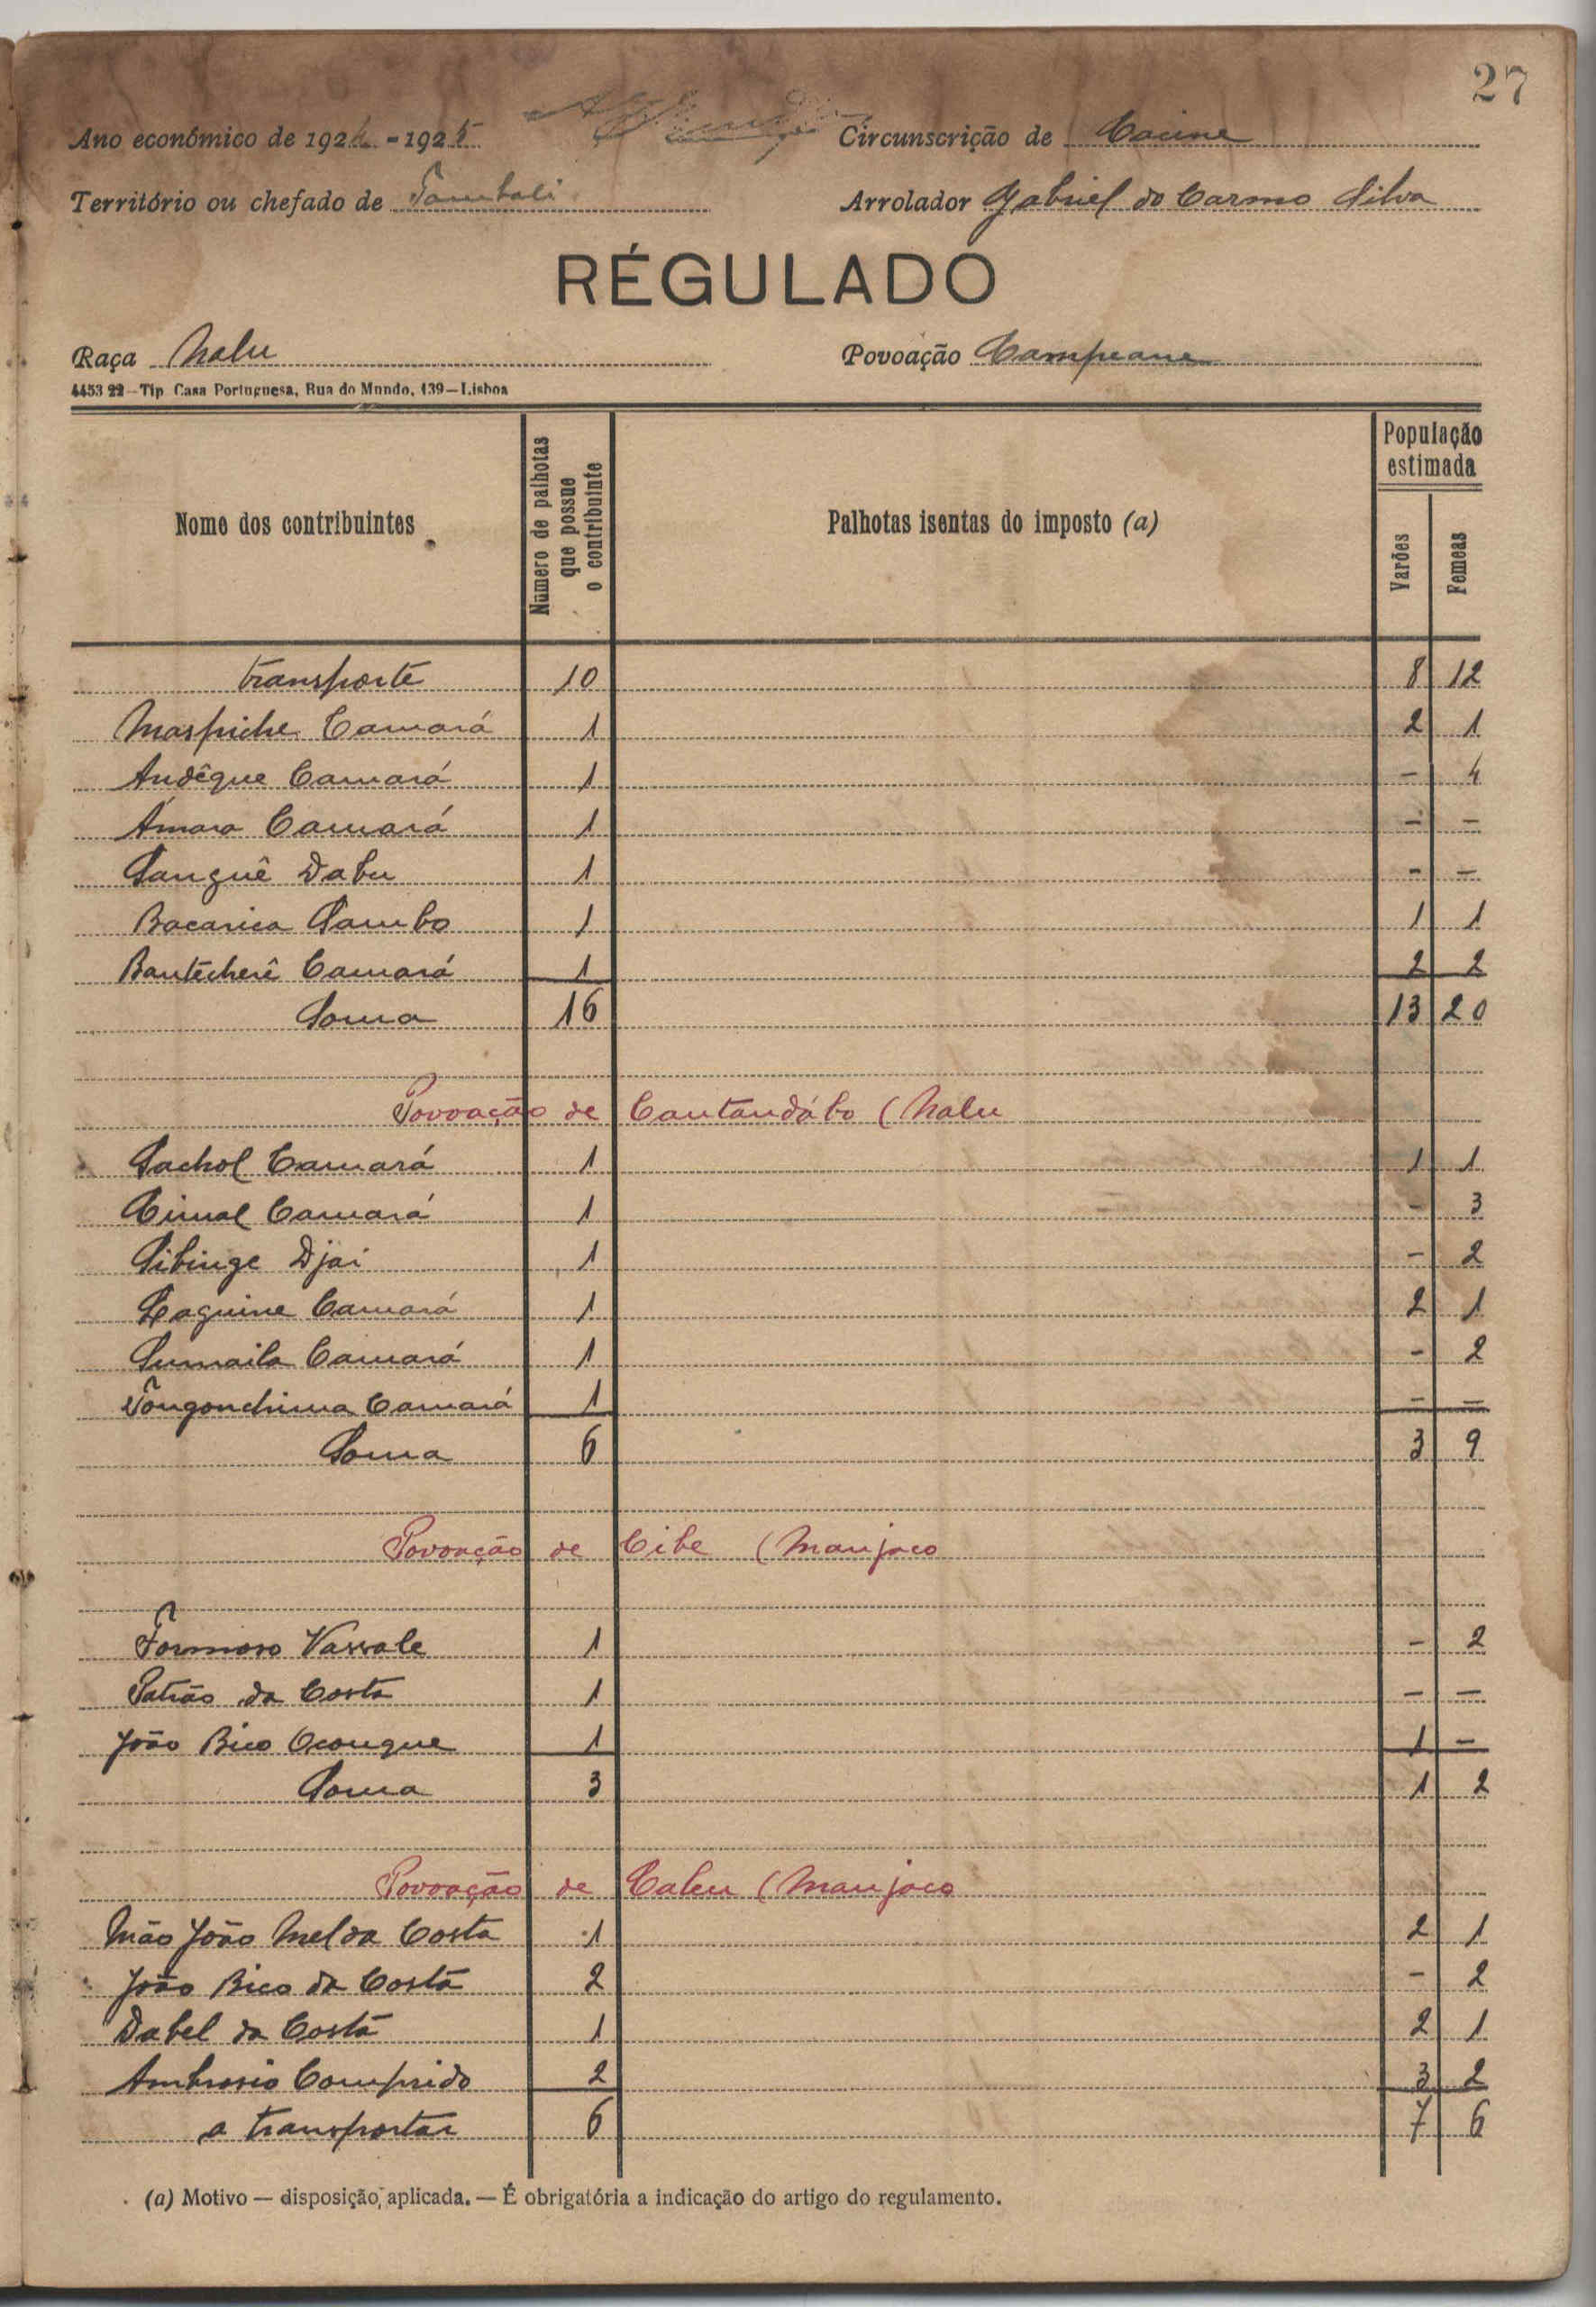 27
Ano económico de 1924-1925
Circunscrição de Cacine
Território ou chefado de Tombali
Arrolador Gabriel do Carmo Silva
RÉGULADO
Raça Nalu
Povoação Campeane
4453 22 - Tip Casa Portuguesa, Rua do Mundo, 139 - Lisboa
Nome dos contribuintes
Número de palhotas que possue o contribuinte
Palhotas isentas do imposto (a)
População estimada
Varões
Femeas
transporte 10 8 12
Maspiche Camará 1 2 1
Andêque Camará 1 - 4
Ámara Camará 1 - -
Sanguê Dabu 1 - -
Bacarica Sambo 1 1 1
Bantecherê Camará 1 2 2
Soma 16 13 20
Povoação de Cantandábo (Nalu
Sachol Camará 1 1 1
Cimal Camará 1 - 3
Sibinge Djai 1 - 2
Laguine Camará 1 2 1
Sumaila Camará 1 - 2
Tongonchima Camará 1 - -
Soma 6 3 9
Povoação de Cibe (Manjaco
Formoso Vassale 1 - 2
Patrão da Costa 1 - -
João Bico Ocongue 1 1 -
Soma 3 1 2
Povoação de Caleu (Manjaco
Mão João Mel da Costa 1 2 1
João Bico da Costa 2 - 2
Dabel da Costa 1 2 1
Ambrosio Comprido 2 3 2
a transportar 6 7 6
(a) Motivo — disposição, aplicada. — É obrigatória a indicação do artigo do regulamento.